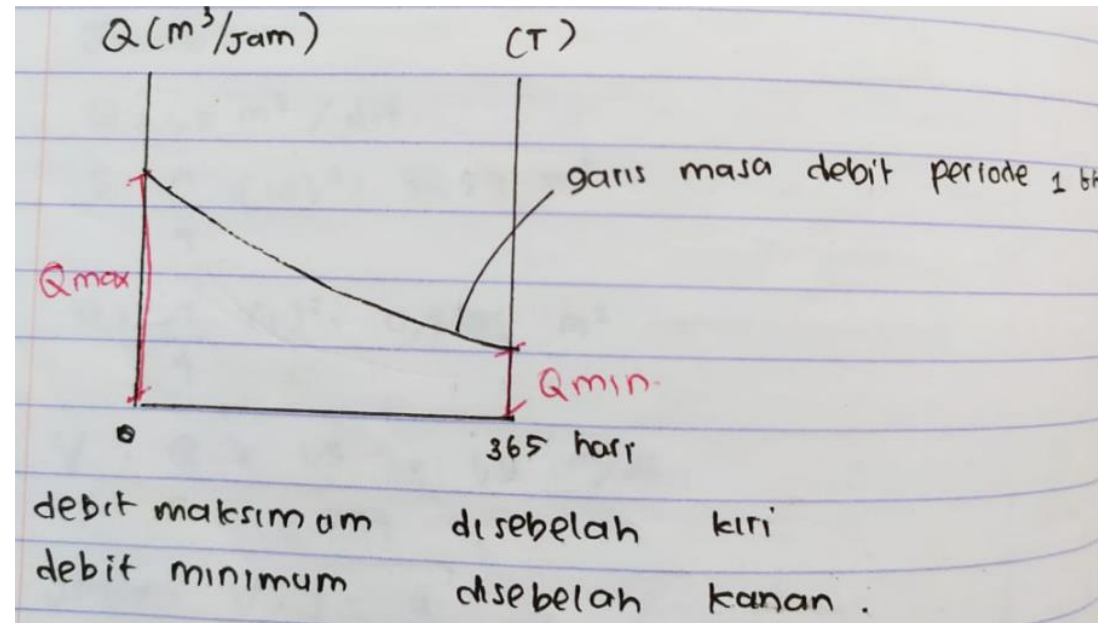 Q (m³/Jam) (T)
garis masa debit periode 1
Qmax
Qmin.
0 365 hari
debit maksimum disebelah kiri
debit minimum disebelah kanan.